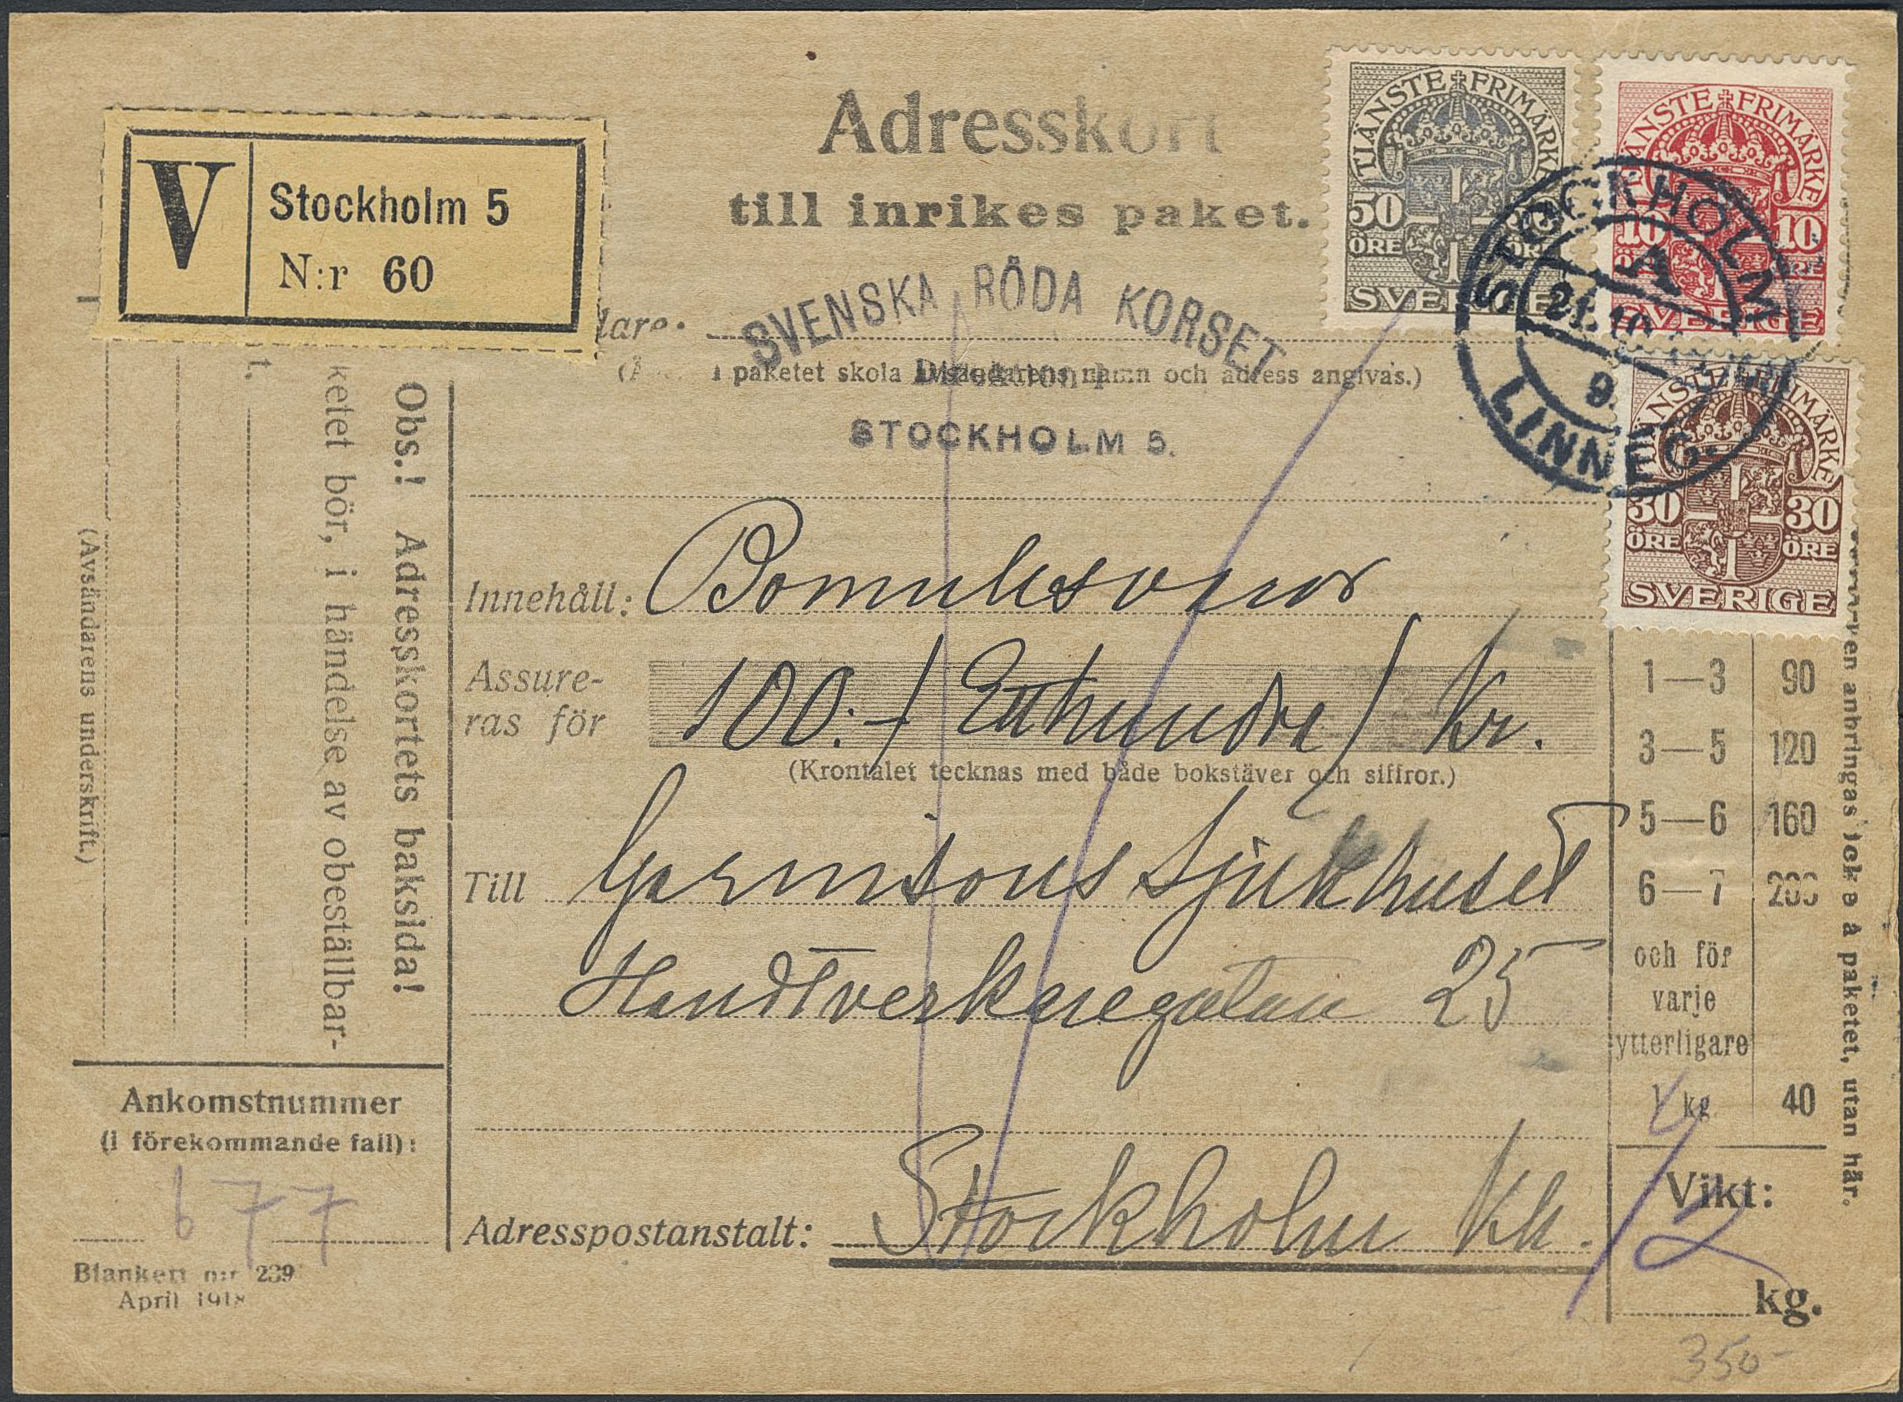 Adresskort
till inrikes paket.
V
Stockholm 5
N:r 60
SVENSKA RÖDA KORSET
STOCKHOLM 5.
paketet skola namn och adress angivas.)
TJÄNSTE FRIMÄRKE
50 ÖRE
SVERIGE
TJÄNSTE FRIMÄRKE
10 10
ÖRE
SVERIGE
TJÄNSTE FRIMÄRKE
30 30
ÖRE ÖRE
SVERIGE
STOCKHOLM
A
21.10
9.
LINNEG.
Innehåll: Bomullsvaror
Assure-
ras för
100:-/Etthundra/ Kr.
(Krontalet tecknas med både bokstäver och siffror.)
Till Garnisons Sjukhuset
Handtverkaregatan 25
Adresspostanstalt: Stockholm Kh.
1—3 90
3—5 120
5—6 160
6—7 200
och för
varje
ytterligare
1 kg 40
Vikt:
1/2
kg.
anbringas icke å paketet, utan här.
Obs.! Adresskortets baksida!
ketet bör, i händelse av obeställbar-
t.
(Avsändarens underskrift.)
Ankomstnummer
(i förekommande fall):
677
Blankett n:r 239
April 1918
350-